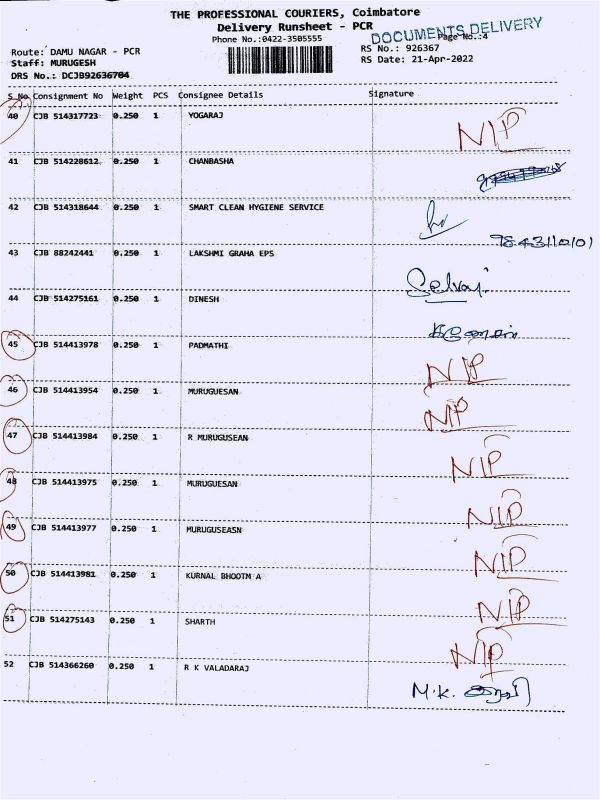 THE PROFESSIONAL COURIERS, Coimbatore
Delivery Runsheet - PCR
DOCUMENTS DELIVERY
Phone No.:0422-3505555
Page No.:4
Route: DAMU NAGAR - PCR
RS No.: 926367
Staff: MURUGESH
RS Date: 21-Apr-2022
DRS No.: DCJB92636704
S No Consignment No Weight PCS Consignee Details Signature
40 CJB 514317723 0.250 1 YOGARAJ NIP
41 CJB 514228612 0.250 1 CHANBASHA
42 CJB 514318644 0.250 1 SMART CLEAN HYGIENE SERVICE
9843110101
43 CJB 88242441 0.250 1 LAKSHMI GRAHA EPS Selvaj
44 CJB 514275161 0.250 1 DINESH
45 CJB 514413978 0.250 1 PADMATHI NIP
46 CJB 514413954 0.250 1 MURUGUESAN NIP
47 CJB 514413984 0.250 1 R MURUGUSEAN NIP
48 CJB 514413975 0.250 1 MURUGUESAN NIP
49 CJB 514413977 0.250 1 MURUGUSEASN NIP
50 CJB 514413981 0.250 1 KURNAL BHOOTM A NIP
51 CJB 514275143 0.250 1 SHARTH NIP
52 CJB 514366260 0.250 1 R K VALADARAJ M.K.